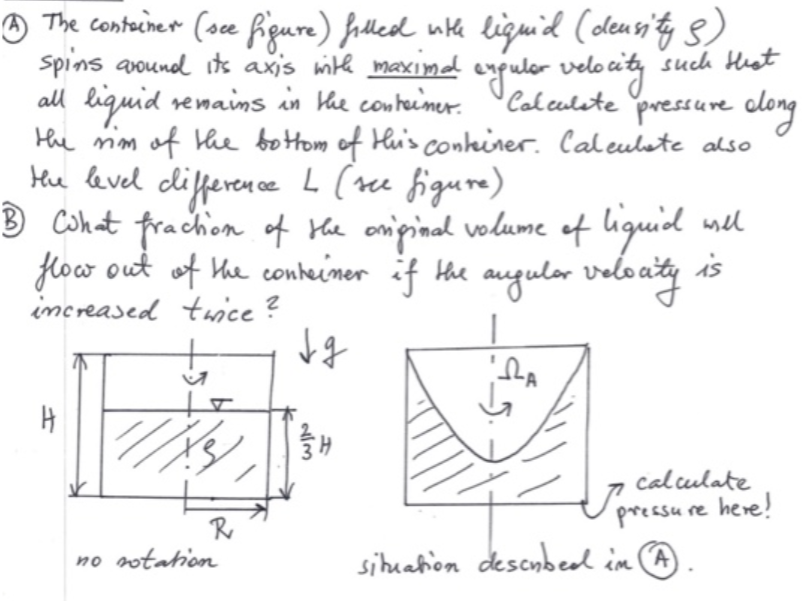 Ⓐ The container (see figure) filled with liquid (density ρ)
spins around its axis with maximal angular velocity such that
all liquid remains in the container. Calculate pressure along
the rim of the bottom of this container. Calculate also
the level difference L (see figure)
Ⓑ What fraction of the original volume of liquid will
flow out of the container if the angular velocity is
increased twice?
↓g
H
ρ
2/3 H
R
no rotation
Ω_A
calculate
pressure here!
situation described in Ⓐ.